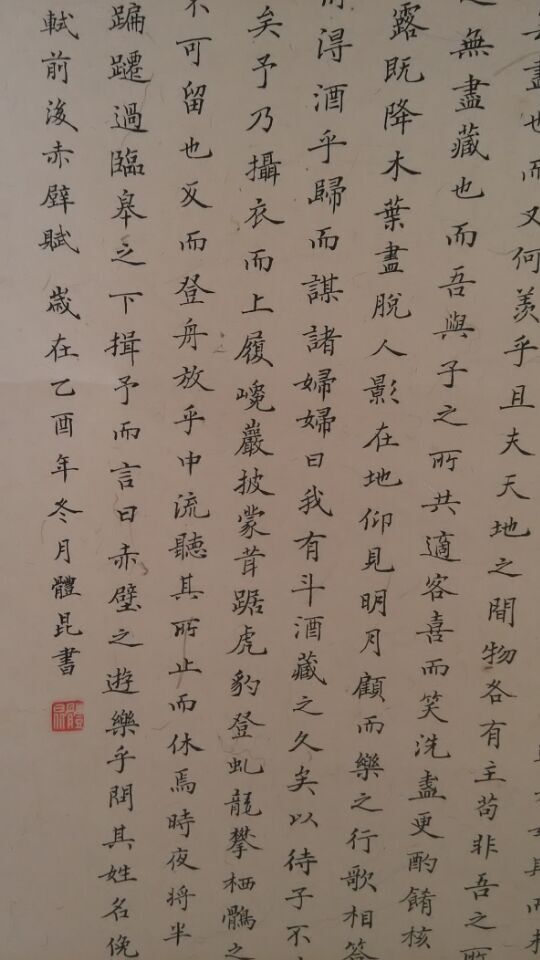 盡也而又何羨乎且夫天地之間物各有主苟非吾之所
無盡藏也而吾與子之所共適客喜而笑洗盞更酌餚核
露既降木葉盡脫人影在地仰見明月顧而樂之行歌相答
得酒乎歸而謀諸婦婦曰我有斗酒藏之久矣以待子不
矣予乃攝衣而上履巉巖披蒙茸踞虎豹登虬龍攀栖鶻之
不可留也反而登舟放乎中流聽其所止而休焉時夜將半
蹁躚過臨皋之下揖予而言曰赤壁之遊樂乎問其姓名俛
軾前後赤壁賦 歲在乙酉年冬月體昆書